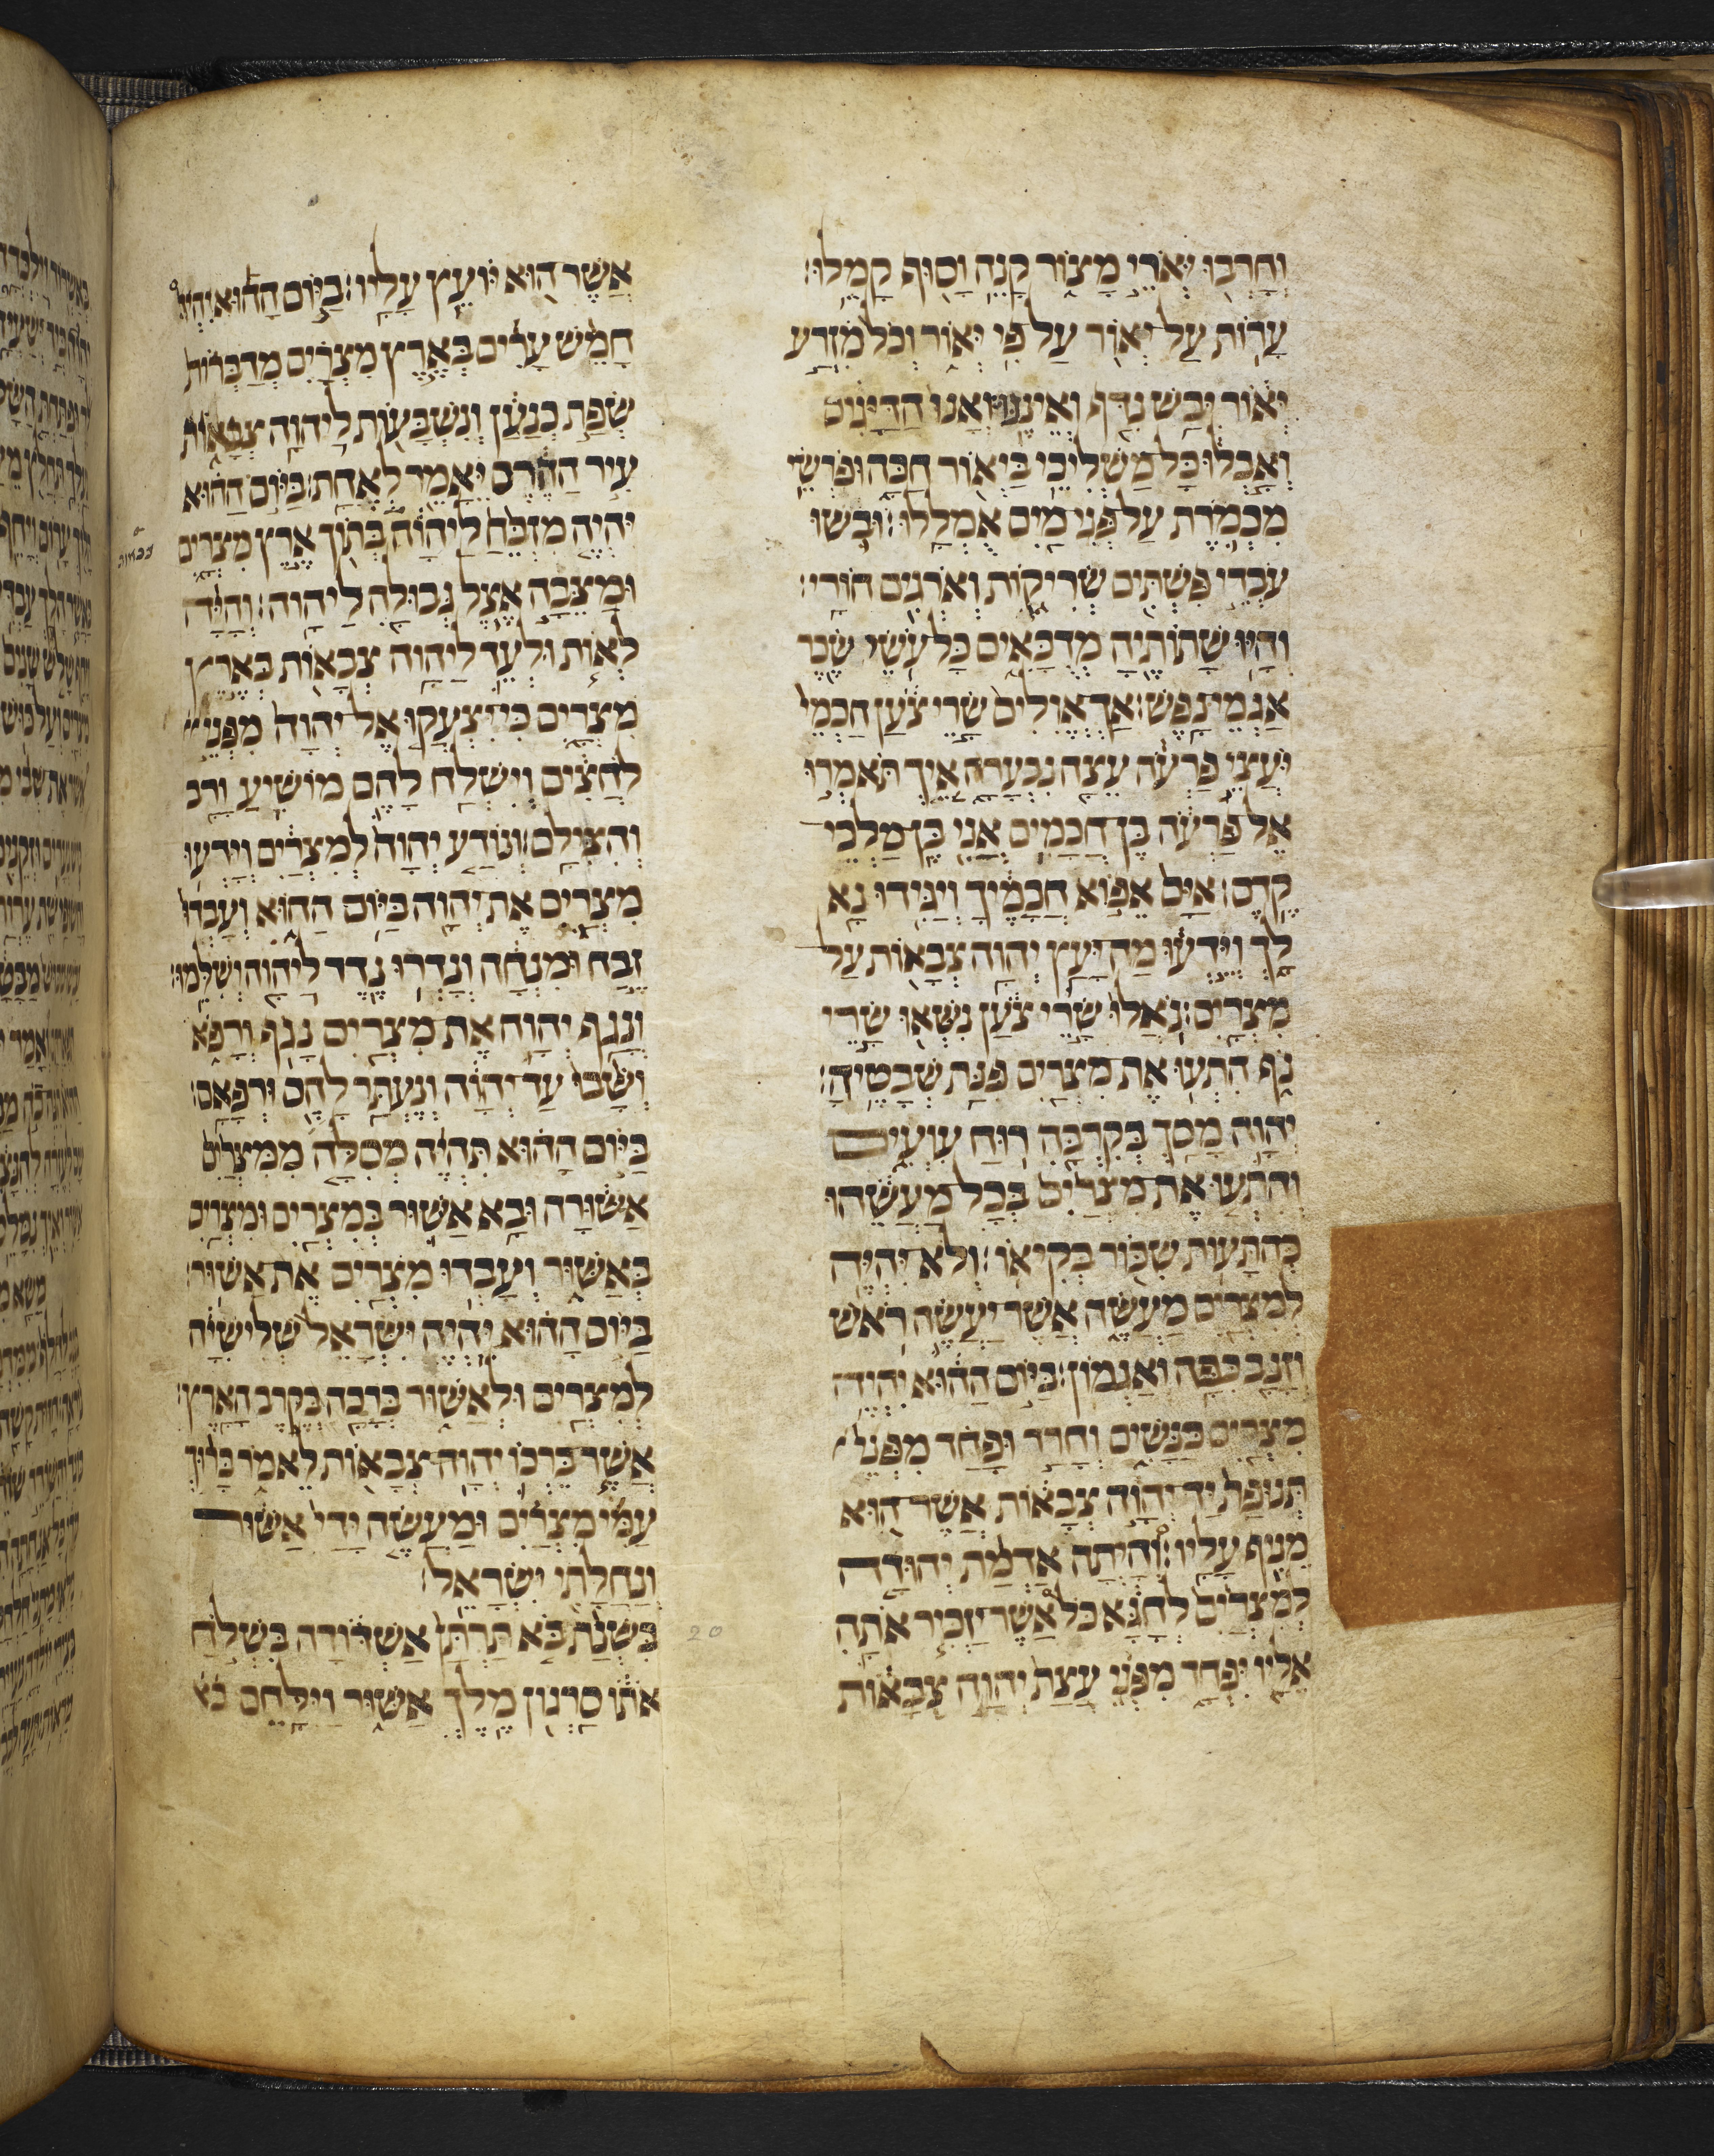 וְחָרְבוּ יְאֹרֵי מָצוֹר קָנֶה וָסוּף קָמֵלוּ׃
עָרוֹת עַל יְאוֹר עַל פִּי יְאוֹר וְכֹל מִזְרַע
יְאוֹר יִבַשׁ נִדַּף וְאֵינֶנּוּ׃ וְאָנוּ הַדַּיָּגִים
וְאָבְלוּ כָּל מַשְׁלִיכֵי בַיְאוֹר חַכָּה וּפֹרְשֵׂי
מִכְמֹרֶת עַל פְּנֵי מַיִם אֻמְלָלוּ׃ וּבֹשׁוּ
עֹבְדֵי פִשְׁתִּים שְׂרִיקוֹת וְאֹרְגִים חוֹרָי׃
וְהָיוּ שָׁתוֹתֶיהָ מְדֻכָּאִים כָּל עֹשֵׂי שֶׂכֶר
אַגְמֵי נָפֶשׁ׃ אַךְ אֱוִלִים שָׂרֵי צֹעַן חַכְמֵי
יֹעֲצֵי פַרְעֹה עֵצָה נִבְעָרָה אֵיךְ תֹּאמְרוּ
אֶל פַּרְעֹה בֶּן חֲכָמִים אֲנִי בֶּן מַלְכֵי
קֶדֶם׃ אַיָּם אֵפוֹא חֲכָמֶיךָ וְיַגִּידוּ נָא
לָךְ וְיֵדְעוּ מַה יָּעַץ יְהוָה צְבָאוֹת עַל
מִצְרָיִם׃ נוֹאֲלוּ שָׂרֵי צֹעַן נִשְּׁאוּ שָׂרֵי
נֹף הִתְעוּ אֶת מִצְרַיִם פִּנַּת שְׁבָטֶיהָ׃
יְהוָה מָסַךְ בְּקִרְבָּהּ רוּחַ עִוְעִים
וְהִתְעוּ אֶת מִצְרַיִם בְּכָל מַעֲשֵׂהוּ
כְּהִתָּעוֹת שִׁכּוֹר בְּקִיאוֹ׃ וְלֹא יִהְיֶה
לְמִצְרַיִם מַעֲשֶׂה אֲשֶׁר יַעֲשֶׂה רֹאשׁ
וְזָנָב כִּפָּה וְאַגְמוֹן׃ בַּיּוֹם הַהוּא יִהְיֶה
מִצְרַיִם כַּנָּשִׁים וְחָרַד וּפָחַד מִפְּנֵי
תְּנוּפַת יַד יְהוָה צְבָאוֹת אֲשֶׁר הוּא
מֵנִיף עָלָיו׃ וְהָיְתָה אַדְמַת יְהוּדָה
לְמִצְרַיִם לְחָגָּא כֹּל אֲשֶׁר יַזְכִּיר אֹתָהּ
אֵלָיו יִפְחָד מִפְּנֵי עֲצַת יְהוָה צְבָאוֹת
אֲשֶׁר הוּא יוֹעֵץ עָלָיו׃ בַּיּוֹם הַהוּא יִהְיוּ
חָמֵשׁ עָרִים בְּאֶרֶץ מִצְרַיִם מְדַבְּרוֹת
שְׂפַת כְּנַעַן וְנִשְׁבָּעוֹת לַיהוָה צְבָאוֹת
עִיר הַהֶרֶס יֵאָמֵר לְאֶחָת׃ בַּיּוֹם הַהוּא
יִהְיֶה מִזְבֵּחַ לַיהוָה בְּתוֹךְ אֶרֶץ מִצְרָיִם
וּמַצֵּבָה אֵצֶל גְּבוּלָהּ לַיהוָה׃ וְהָיָה
לְאוֹת וּלְעֵד לַיהוָה צְבָאוֹת בְּאֶרֶץ
מִצְרָיִם כִּי יִצְעֲקוּ אֶל יְהוָה מִפְּנֵי
לֹחֲצִים וְיִשְׁלַח לָהֶם מוֹשִׁיעַ וָרָב
וְהִצִּילָם׃ וְנוֹדַע יְהוָה לְמִצְרַיִם וְיָדְעוּ
מִצְרַיִם אֶת יְהוָה בַּיּוֹם הַהוּא וְעָבְדוּ
זֶבַח וּמִנְחָה וְנָדְרוּ נֵדֶר לַיהוָה וְשִׁלֵּמוּ׃
וְנָגַף יְהוָה אֶת מִצְרַיִם נָגֹף וְרָפוֹא
וְשָׁבוּ עַד יְהוָה וְנֶעְתַּר לָהֶם וּרְפָאָם׃
בַּיּוֹם הַהוּא תִּהְיֶה מְסִלָּה מִמִּצְרַיִם
אַשּׁוּרָה וּבָא אַשּׁוּר בְּמִצְרַיִם וּמִצְרַיִם
בְּאַשּׁוּר וְעָבְדוּ מִצְרַיִם אֶת אַשּׁוּר׃
בַּיּוֹם הַהוּא יִהְיֶה יִשְׂרָאֵל שְׁלִישִׁיָּה
לְמִצְרַיִם וּלְאַשּׁוּר בְּרָכָה בְּקֶרֶב הָאָרֶץ׃
אֲשֶׁר בֵּרְכוֹ יְהוָה צְבָאוֹת לֵאמֹר בָּרוּךְ
עַמִּי מִצְרַיִם וּמַעֲשֵׂה יָדַי אַשּׁוּר
וְנַחֲלָתִי יִשְׂרָאֵל׃
20
בִּשְׁנַת בֹּא תַרְתָּן אַשְׁדּוֹדָה בִּשְׁלֹחַ
אֹתוֹ סַרְגוֹן מֶלֶךְ אַשּׁוּר וַיִּלָּחֶם